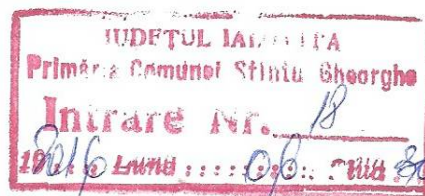 JUDEŢUL IALOMIŢA
Primăria Comunei Sfîntu Gheorghe
Intrare Nr. 18
2016 Luna 06 Ziua 30